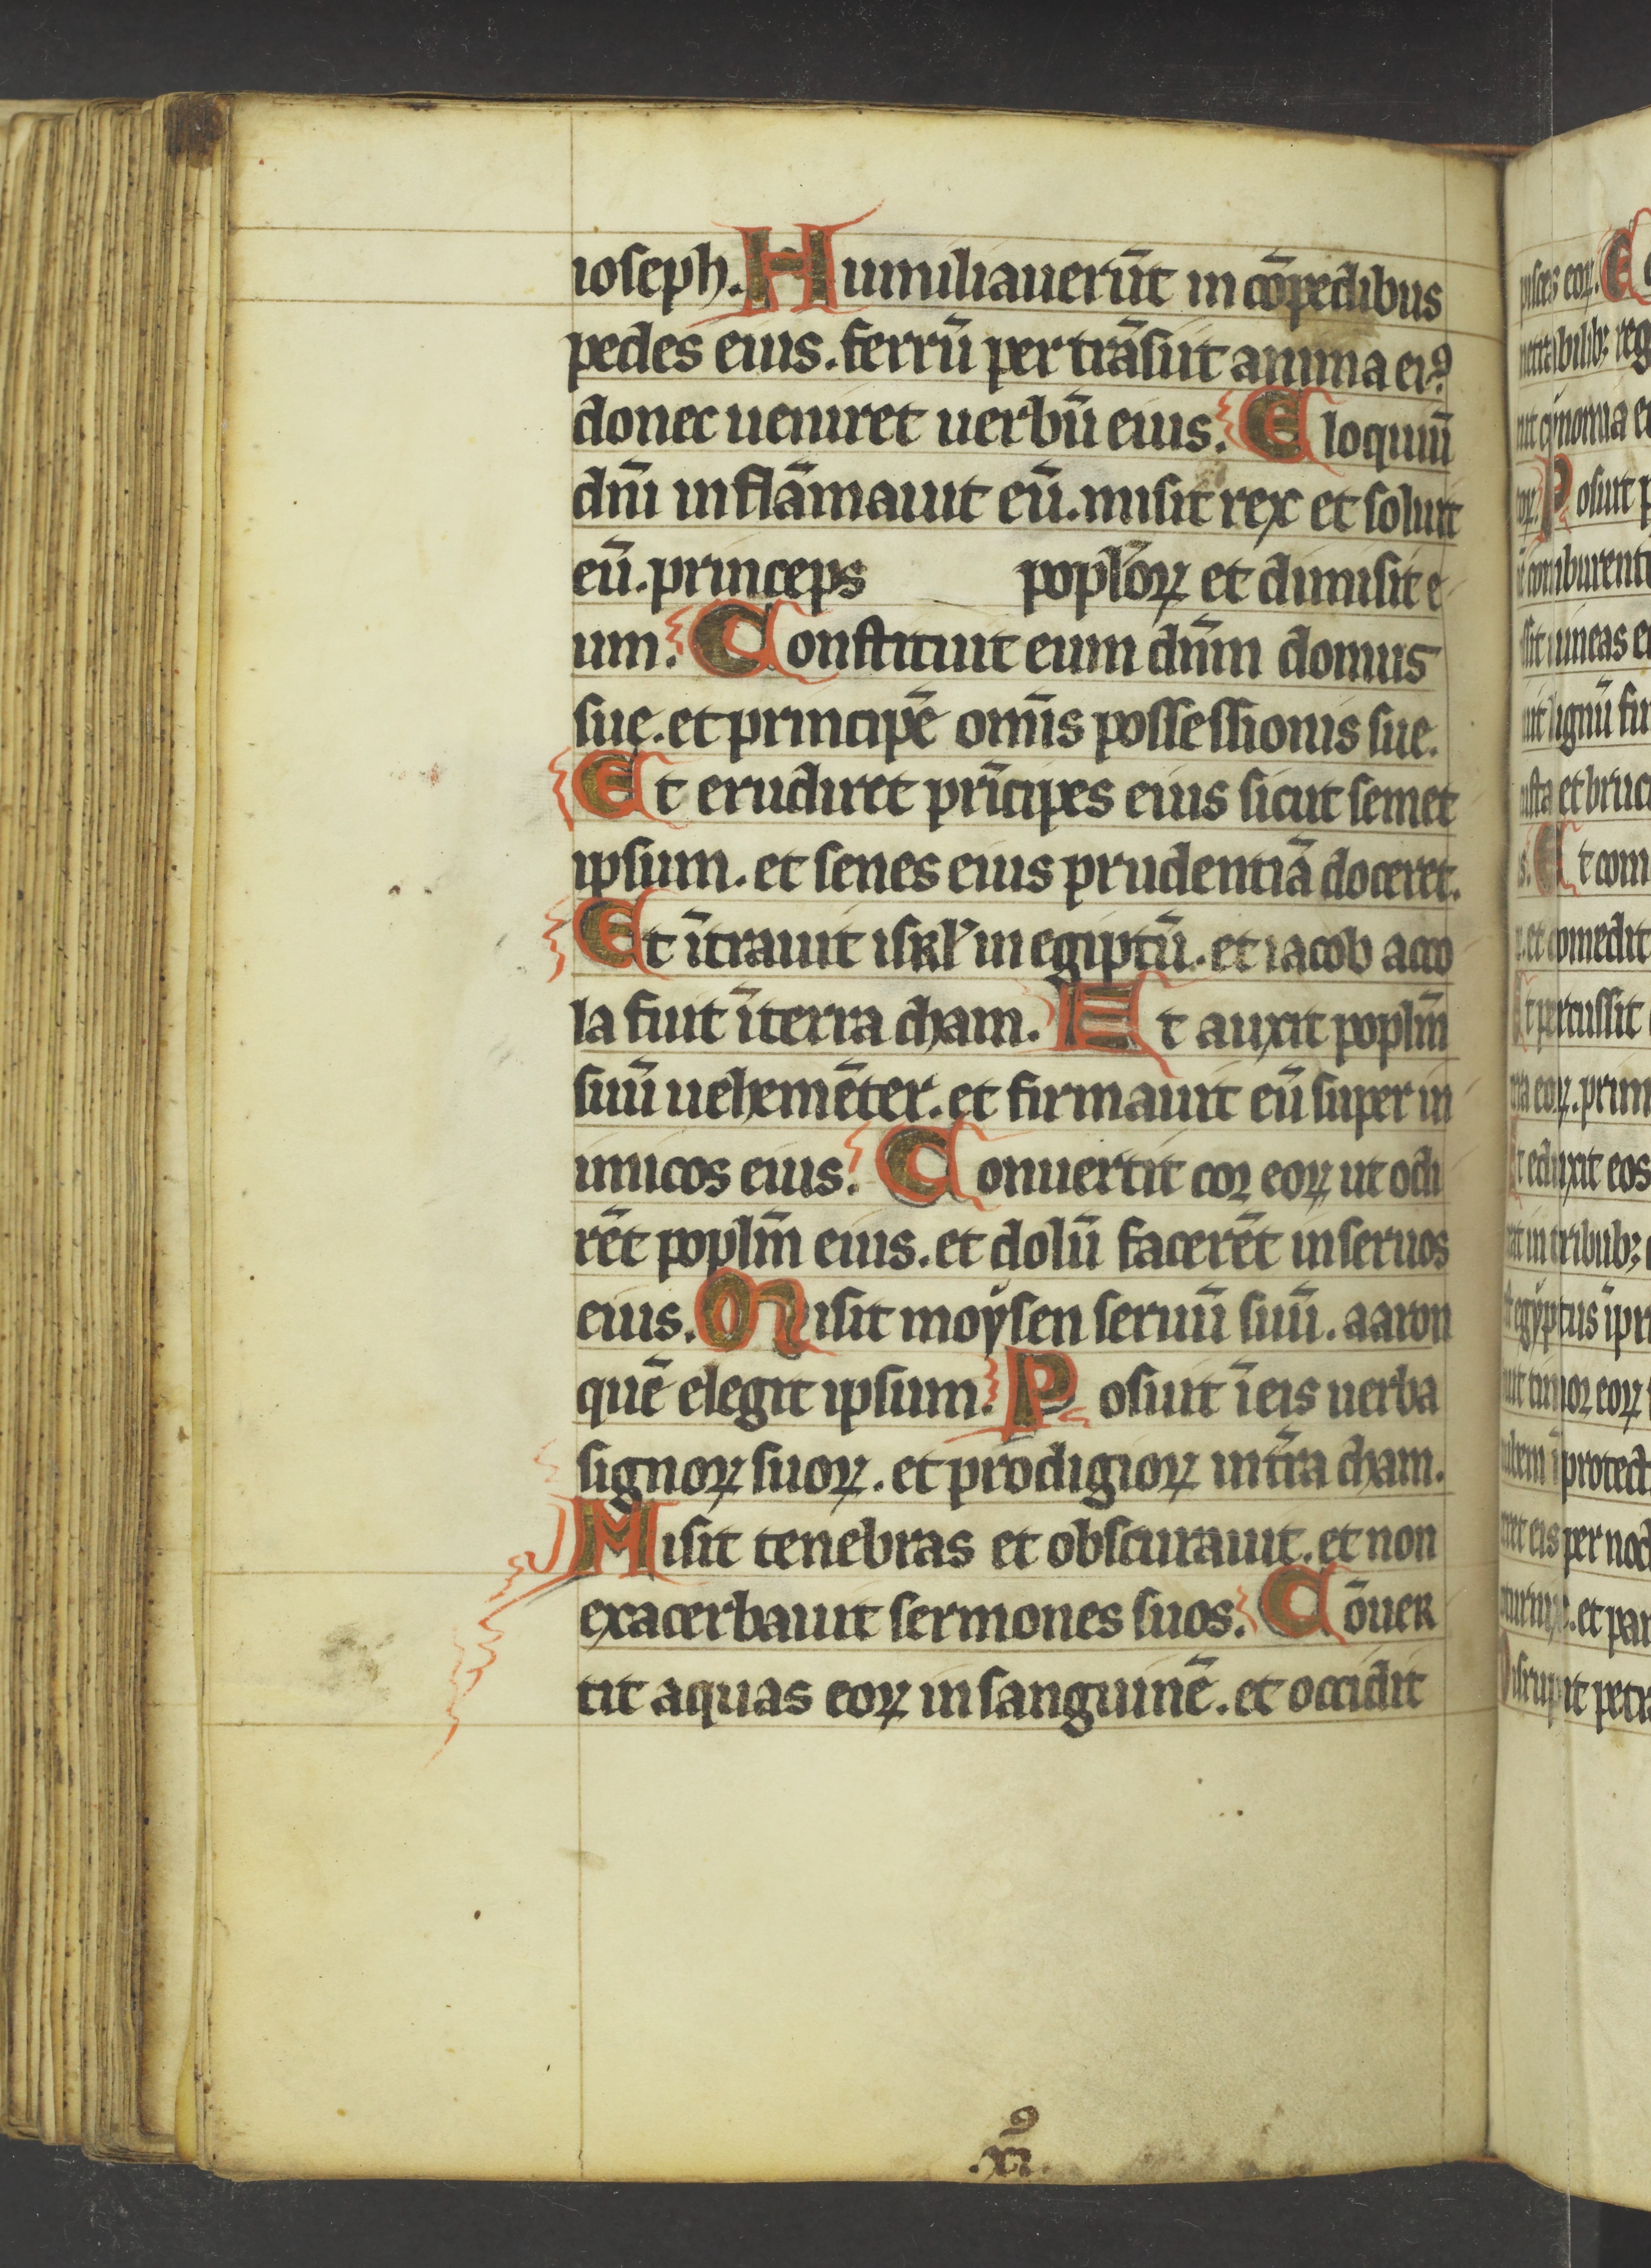 ioseph. Humiliauerūt in cōpedibus
pedes eius. ferrū per trāsiit anima eiꝰ
donec ueniret uerbū eius. Eloquiū
dn̄i inflāmauit eū. misit rex et soluit
eū. princeps popl̄oꝝ et dimisit e
um. Constituit eum dn̄m domus
sue. et principē om̄is possessionis sue.
Et erudiret prīcipes eius sicut semet
ipsum. et senes eius prudentiā doceret.
Et ītrauit isrl̄ in egiptū. et iacob acco
la fuit ī terra cham. Et auxit popl̄m
suū uehemēter. et firmauit eū super in
imicos eius. Conuertit cor eoꝝ ut odi
rēt popl̄m eius. et dolū facerēt in seruos
eius. Misit moẏsen seruū suū. aaron
quē elegit ipsum. Posuit ī eis uerba
signoꝝ suoꝝ. et prodigioꝝ in tr̄a cham.
Misit tenebras et obscurauit. et non
exacerbauit sermones suos. Cōuer
tit aquas eoꝝ in sanguinē. et occidit
.xiꝰ.
pisces eoꝝ. E
netrabilibꝫ reg
uit cynomia e
oꝝ. Posuit p
ē comburent
ssit uineas e
uit lignū fi
usta et bruc
s. Et com
et comedit
Et percussit
rra eoꝝ. prim
Et eduxit eos
rat in tribubꝫ
egẏptus ī pr
uit timor eoꝝ
ubem ī protect
ret eis per noct
oturnix. et pan
Disrupit petr